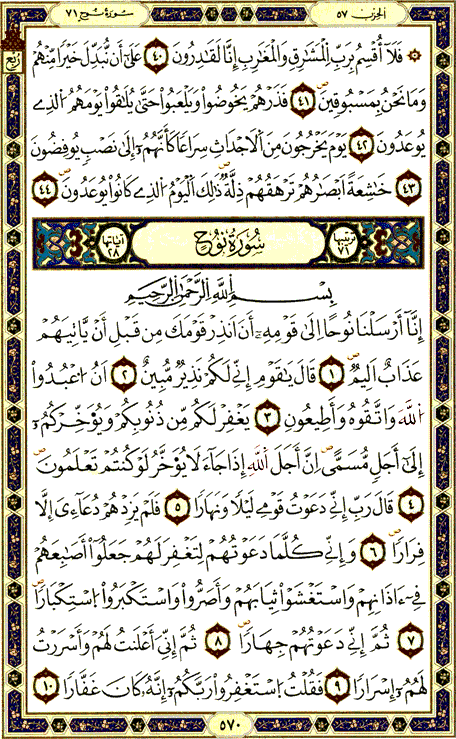 الحزب ٥٧
سورة نوح ٧١
ربع
۞ فَلَآ أُقْسِمُ بِرَبِّ اِ۬لْمَشَٰرِقِ وَالْمَغَٰرِبِ إِنَّا لَقَٰدِرُونَ ٤٠ عَلَىٰٓ أَن نُّبَدِّلَ خَيْراٗ مِّنْهُمْ
وَمَا نَحْنُ بِمَسْبُوقِينَۖ ٤١ فَذَرْهُمْ يَخُوضُواْ وَيَلْعَبُواْ حَتَّىٰ يُلَٰقُواْ يَوْمَهُمُ اُ۬لذِے
يُوعَدُونَ ٤٢ يَوْمَ يَخْرُجُونَ مِنَ اَ۬لَاجْدَاثِ سِرَاعاٗ كَأَنَّهُمُۥٓ إِلَىٰ نَصْبٖ يُوفِضُونَ
٤٣ خَٰشِعَةً اَبْصَٰرُهُمْ تَرْهَقُهُمْ ذِلَّةٞۖ ذَٰلِكَ اَ۬لْيَوْمُ اُ۬لذِے كَانُواْ يُوعَدُونَۖ ٤٤
ترتيبها ٧١ سُورَةُ نُوحٍ آياتها ٢٨
بِسْمِ اِ۬للَّهِ اِ۬لرَّحْمَٰنِ اِ۬لرَّحِيمِ
إِنَّآ أَرْسَلْنَا نُوحاً اِلَىٰ قَوْمِهِۦٓ أَنَ اَنذِرْ قَوْمَكَ مِن قَبْلِ أَنْ يَّاتِيَهُمْ
عَذَابٌ اَلِيمٞۖ ١ قَالَ يَٰقَوْمِ إِنِّے لَكُمْ نَذِيرٞ مُّبِينٌ ٢ اَنُ اُ۟عْبُدُواْ
اُ۬للَّهَ وَاتَّقُوهُ وَأَطِيعُونِۖ ٣ يَغْفِرْ لَكُم مِّن ذُنُوبِكُمْ وَيُوَ۬خِّرْكُمُۥٓ
إِلَىٰٓ أَجَلٖ مُّسَمًّىۖ اِنَّ أَجَلَ اَ۬للَّهِ إِذَا جَآءَ لَا يُوَ۬خَّرُ لَوْ كُنتُمْ تَعْلَمُونَۖ
٤ قَالَ رَبِّ إِنِّے دَعَوْتُ قَوْمِے لَيْلاٗ وَنَهَاراٗ ٥ فَلَمْ يَزِدْهُمْ دُعَآءِيَ إِلَّا
فِرَاراٗۖ ٦ وَإِنِّے كُلَّمَا دَعَوْتُهُمْ لِتَغْفِرَ لَهُمْ جَعَلُوٓاْ أَصَٰبِعَهُمْ
فِےٓ ءَاذَانِهِمْ وَاسْتَغْشَوْاْ ثِيَابَهُمْ وَأَصَرُّواْ وَاسْتَكْبَرُواْ اُ۪سْتِكْبَاراٗۖ
٧ ثُمَّ إِنِّے دَعَوْتُهُمْ جِهَاراٗۖ ٨ ثُمَّ إِنِّيَ أَعْلَنتُ لَهُمْ وَأَسْرَرْتُ
لَهُمُۥٓ إِسْرَاراٗۖ ٩ فَقُلْتُ اُ۪سْتَغْفِرُواْ رَبَّكُمُۥٓ إِنَّهُۥ كَانَ غَفَّاراٗ ١٠
٥٧٠